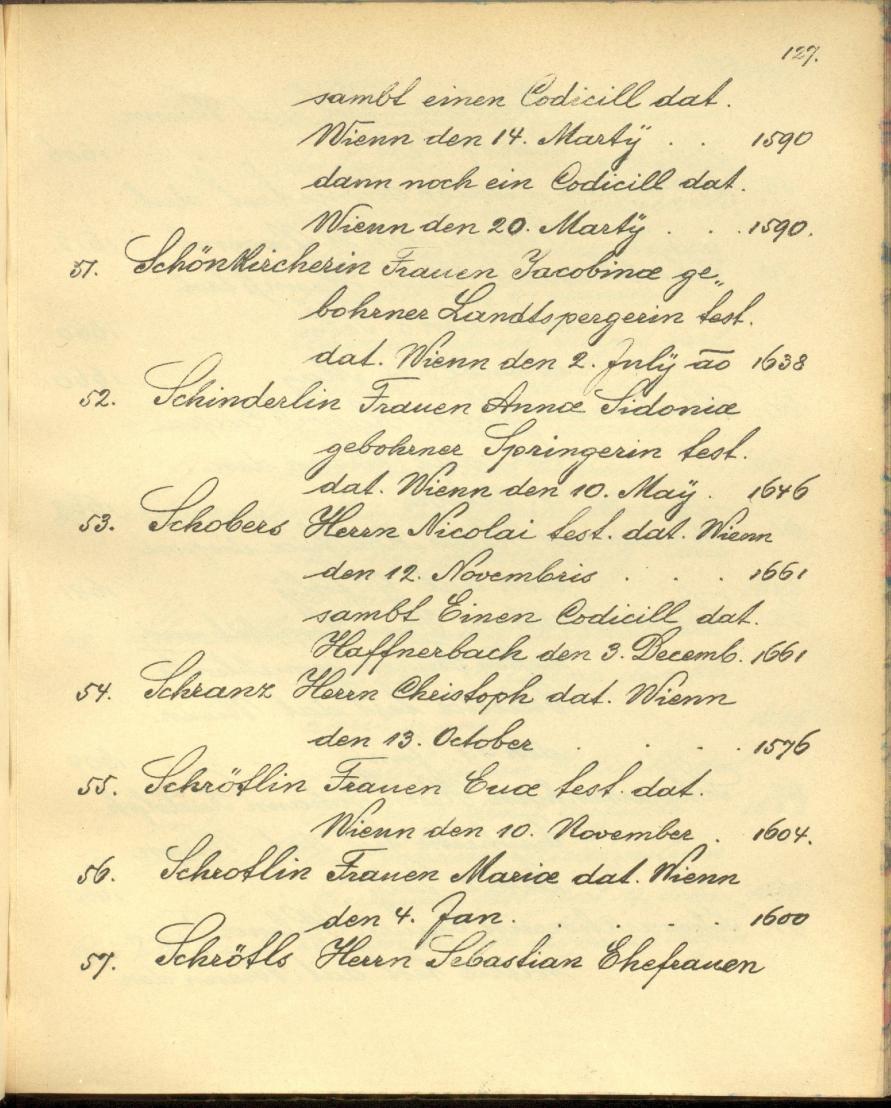 127.
sambt einen Codicill dat.
Wienn den 14. Martÿ . . 1590
dann noch ein Codicill dat.
Wienn den 20. Martÿ . . . 1590.
51. Schönkircherin Frauen Jacobinæ ge„
bohrner Landtspergerin test.
dat. Wienn den 2. Julÿ a͞o 1638
52. Schinderlin Frauen Annæ Sidoniæ
gebohrner Springerin test.
dat. Wienn den 10. Maÿ. 1646
53. Schobers Herrn Nicolai test. dat. Wienn
den 12. Novembris . . . 1661
sambt Einen Codicill dat.
Haffnerbach den 3. Decemb. 1661
54. Schranz Herrn Christoph dat. Wienn
den 13. October . . . 1576
55. Schrötlin Frauen Euæ test. dat.
Wienn den 10. November . 1604.
56. Schrotlin Frauen Mariæ dat. Wienn
den 4. Jan. . . . . 1600
57. Schrötls Herrn Sebastian Ehefrauen